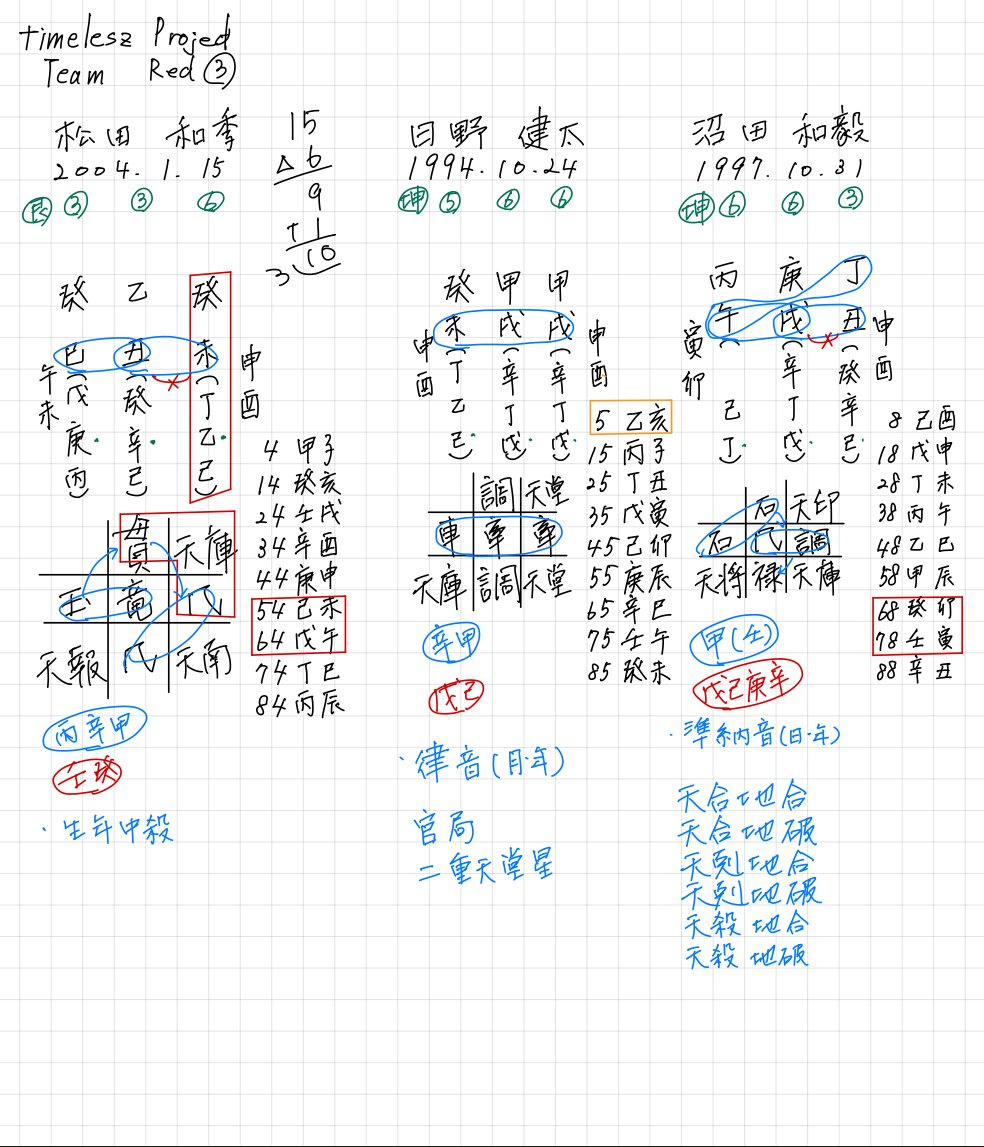 timelesz Project
Team Red ③
松田 和季
2004. 1. 15
艮 ③ ③ ⑥
15
△ 6
9
+ 1
10
3
癸 乙 癸
巳 丑 未
午未
申酉
(戊 (癸 (丁
庚・ 辛・ 乙・
丙) 己) 己)
貫 天庫
玉 竜 ㇠
天報 天南
4 甲子
14 癸亥
24 壬戌
34 辛酉
44 庚申
54 己未
64 戊午
74 丁巳
84 丙辰
丙辛甲
壬癸
・生年中殺
日野 健太
1994. 10. 24
坤 ⑤ ⑥ ⑥
癸 甲 甲
未 戌 戌
申酉
申酉
(丁 (辛 (辛
乙 丁 丁
己)・ 戊)・ 戊)・
調 天堂
車 牽 牽
天庫 調 天堂
5 乙亥
15 丙子
25 丁丑
35 戊寅
45 己卯
55 庚辰
65 辛巳
75 壬午
85 癸未
辛甲
戊己
・律音(月・年)
官局
二重天堂星
沼田 和毅
1997. 10. 31
坤 ⑥ ⑥ ③
丙 庚 丁
午 戌 丑
寅卯
申酉
( (辛 (癸
己 丁 辛
丁)・ 戊)・ 己)・
石 天印
石 調
天将 禄 天庫
8 己酉
18 戊申
28 丁未
38 丙午
48 乙巳
58 甲辰
68 癸卯
78 壬寅
88 辛丑
甲(壬)
戊己庚辛
・準納音(日・年)
天合地合
天合地破
天剋地合
天剋地破
天殺地合
天殺地破